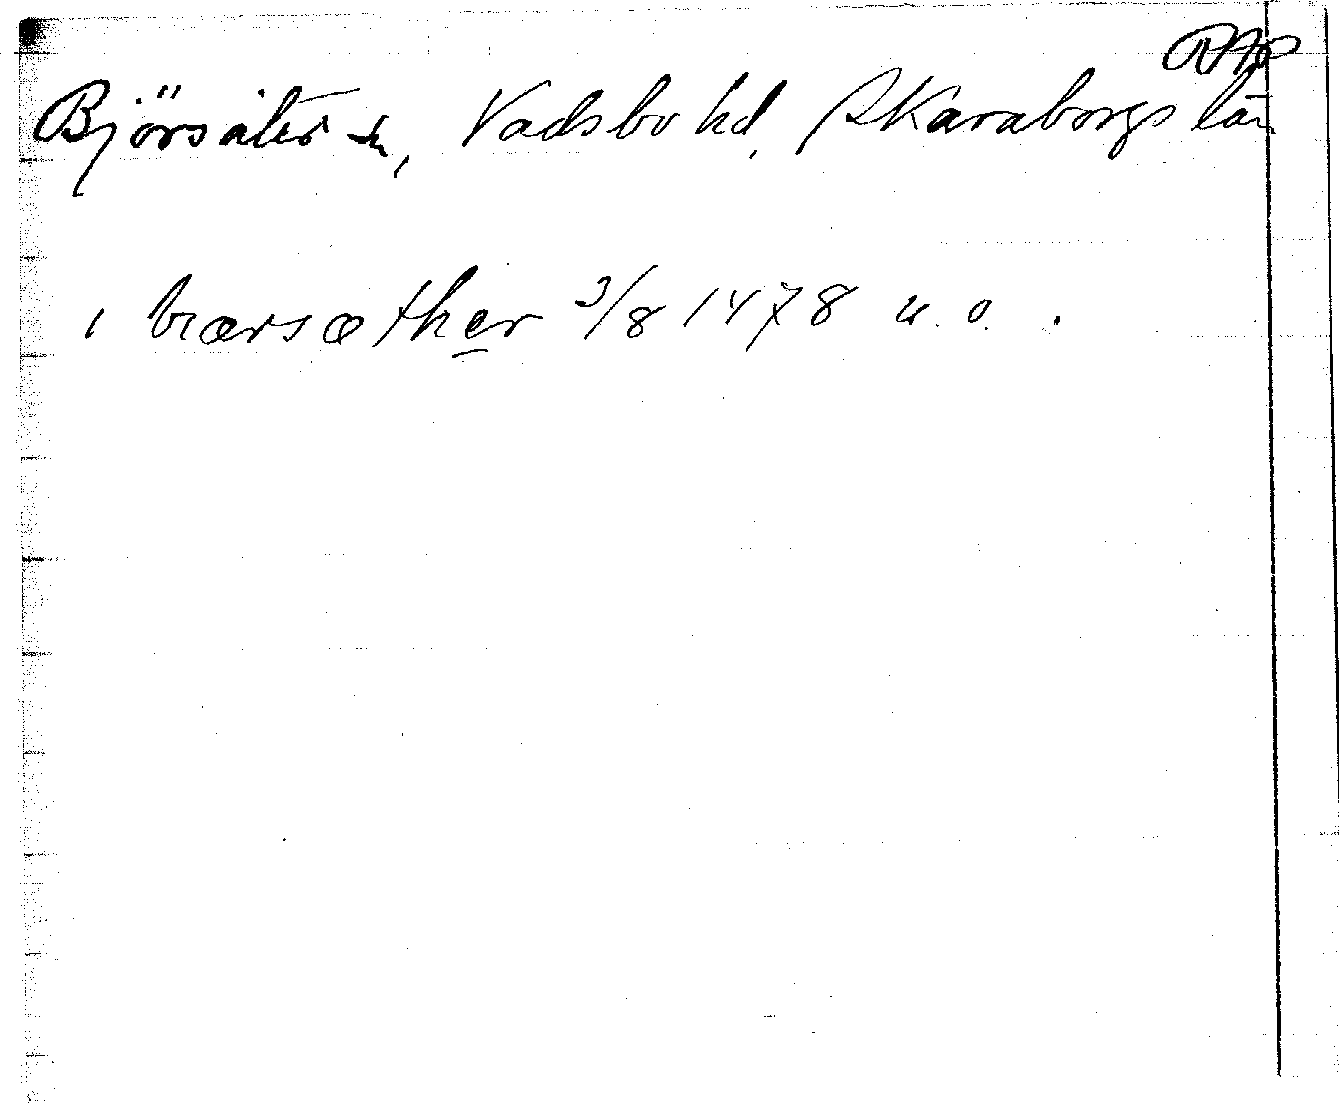 RAP
Björsäters sn, Vadsbo hd, Skaraborgs län
i biærsæther 3/8 1478 u.o.